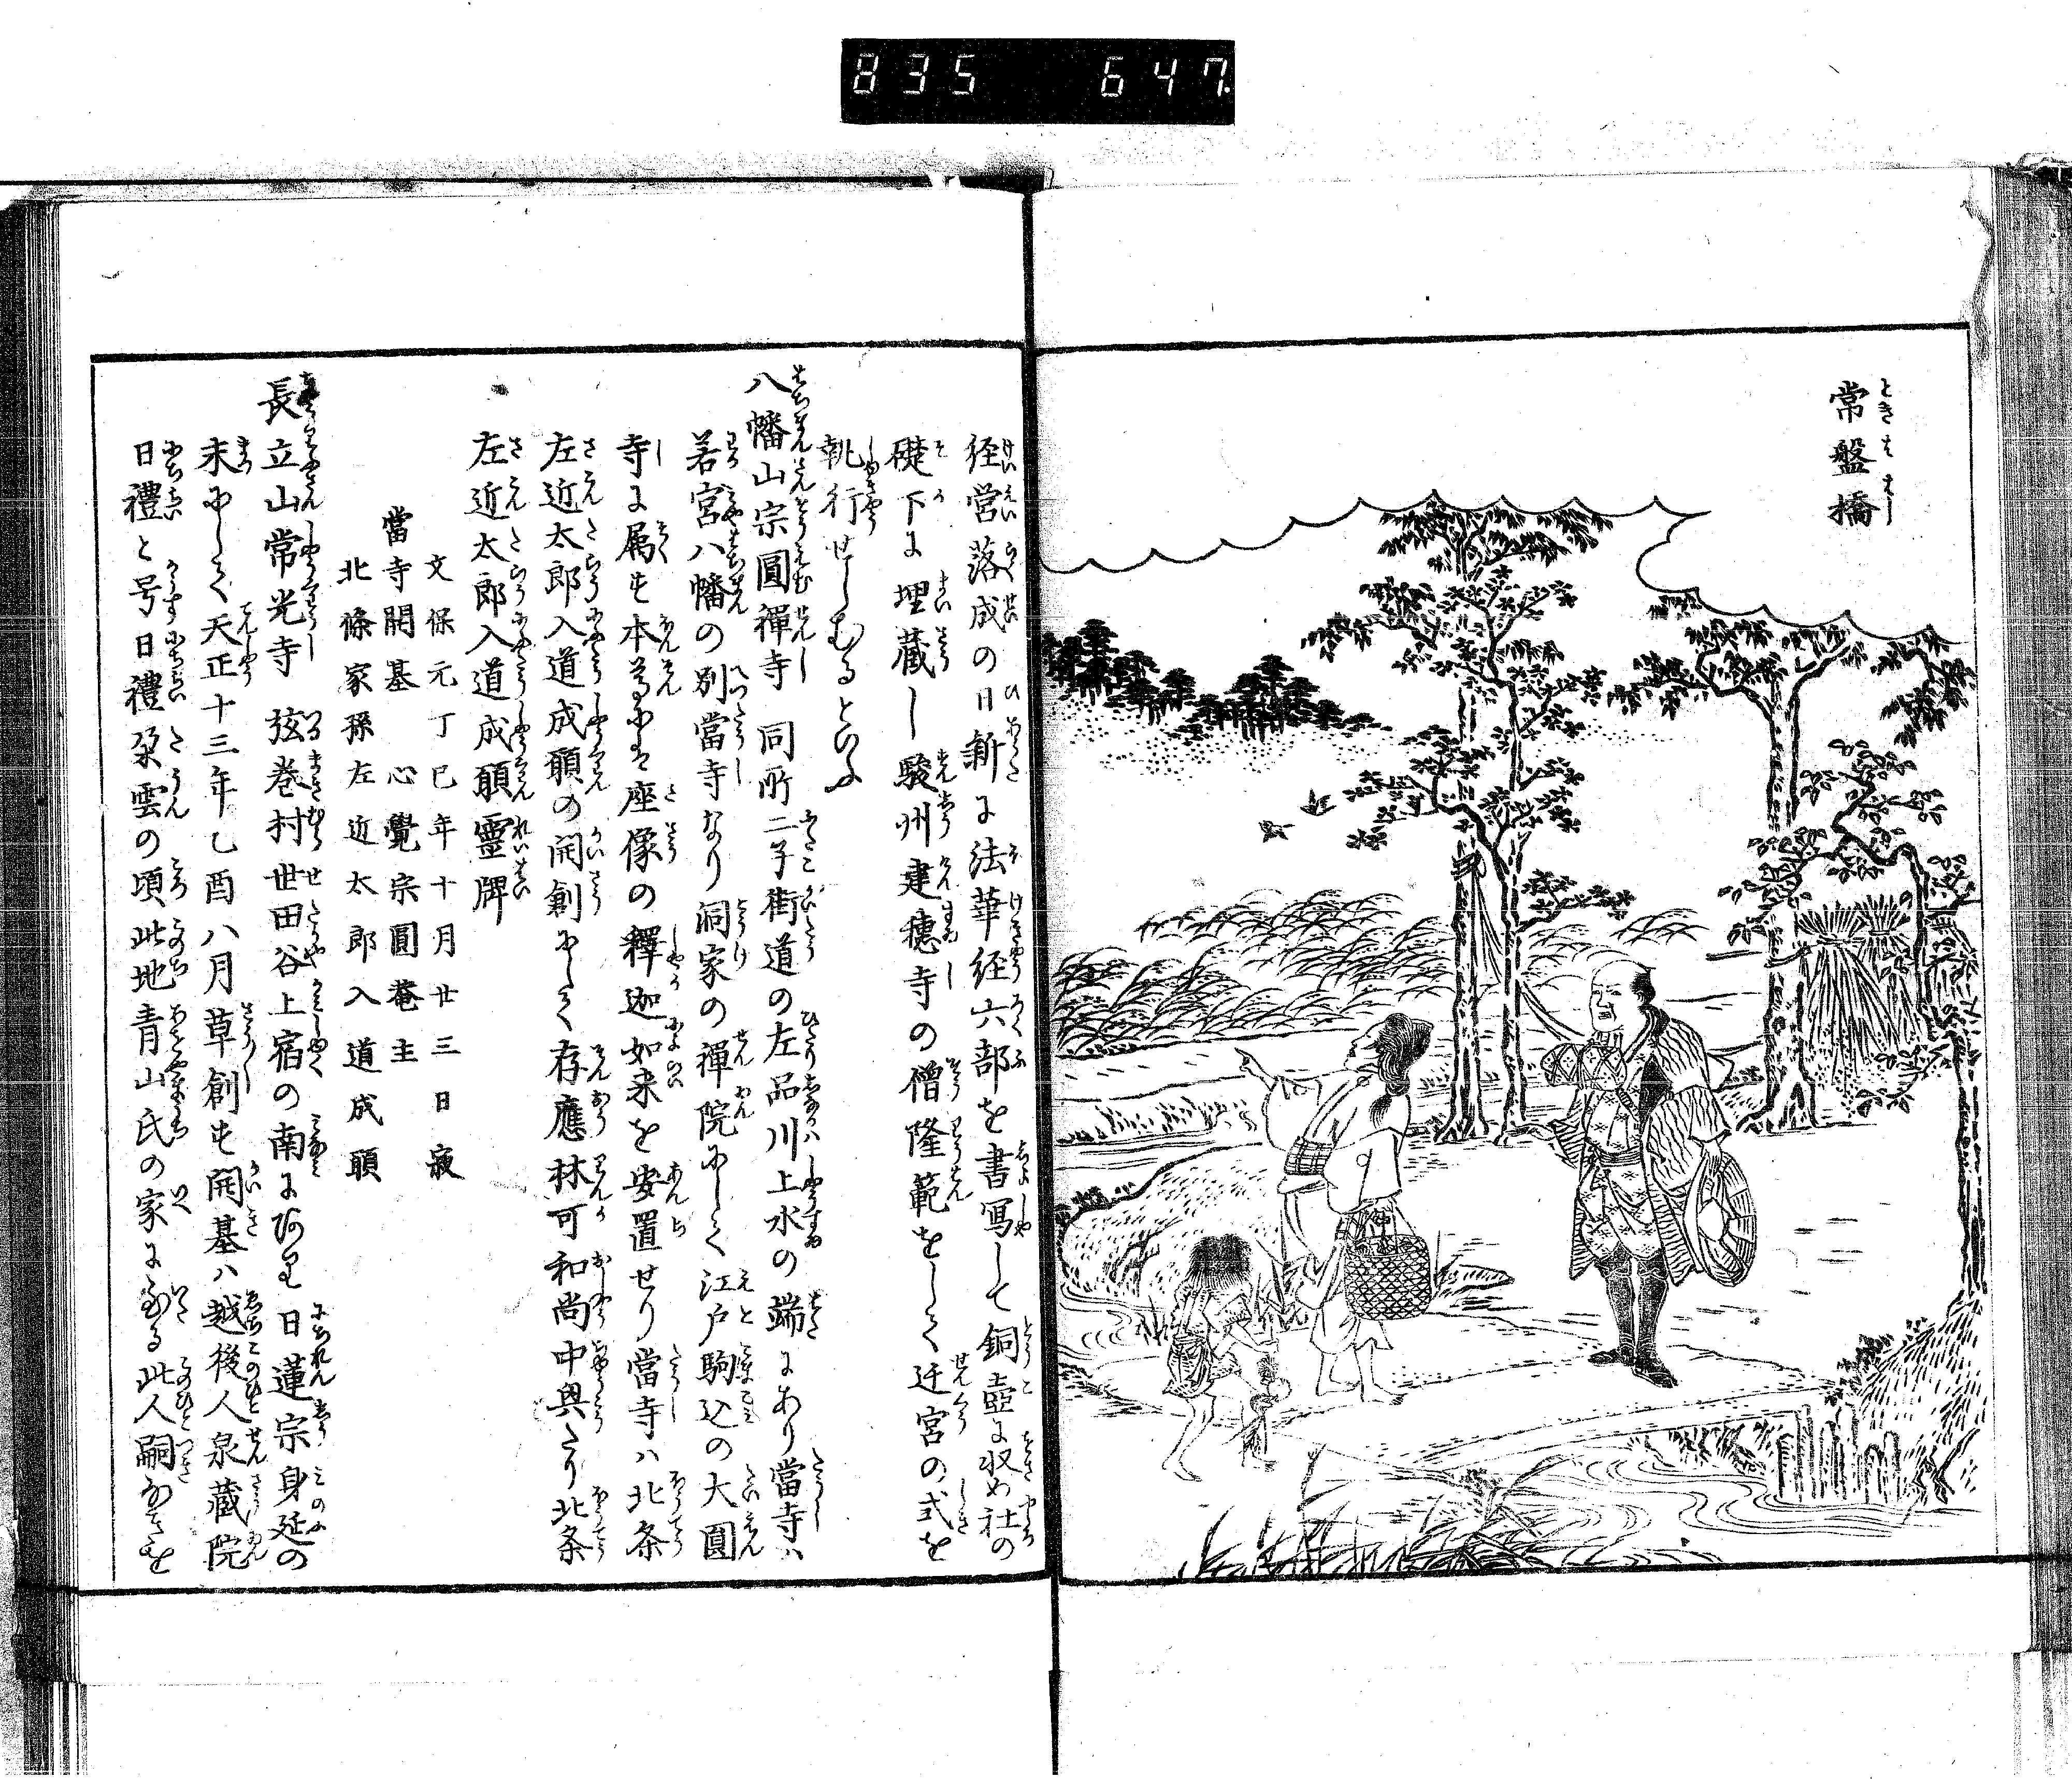 835 647
常盤橋
経営落成の日新に法華経六部を書写して銅壺に収め社の
礎下に埋蔵し駿州建穂寺の僧隆範をして迁宮の式を
執行せしむるといふ
八幡山宗圓禪寺 同所二子街道の左品川上水の端にあり當寺ハ
若宮八幡の別當寺なり洞家の禪院にして江戸駒込の大圓
寺に属す本尊にハ座像の釋迦如来を安置せり當寺ハ北条
左近太郎入道成願の開創にして存應林可和尚中興たり北条
左近太郎入道成願靈牌
文保元丁巳年十月廿三日寂
當寺開基心覺宗圓菴主
北條家孫左近太郎入道成願
長立山常光寺 弦巻村世田谷上宿の南にあり日蓮宗身延の
末にして天正十三年乙酉八月草創す開基ハ越後人泉蔵院
日禮と号す日禮朶雲の頃此地青山氏の家に至る此人嗣なきを